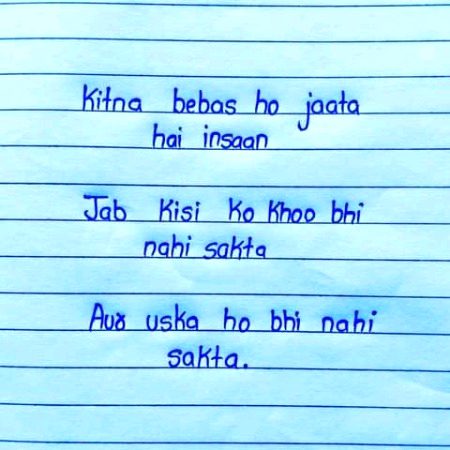 Kitna bebas ho jaata
hai insaan
Jab Kisi Ko Khoo bhi
nahi sakta
Aur uska ho bhi nahi
sakta.